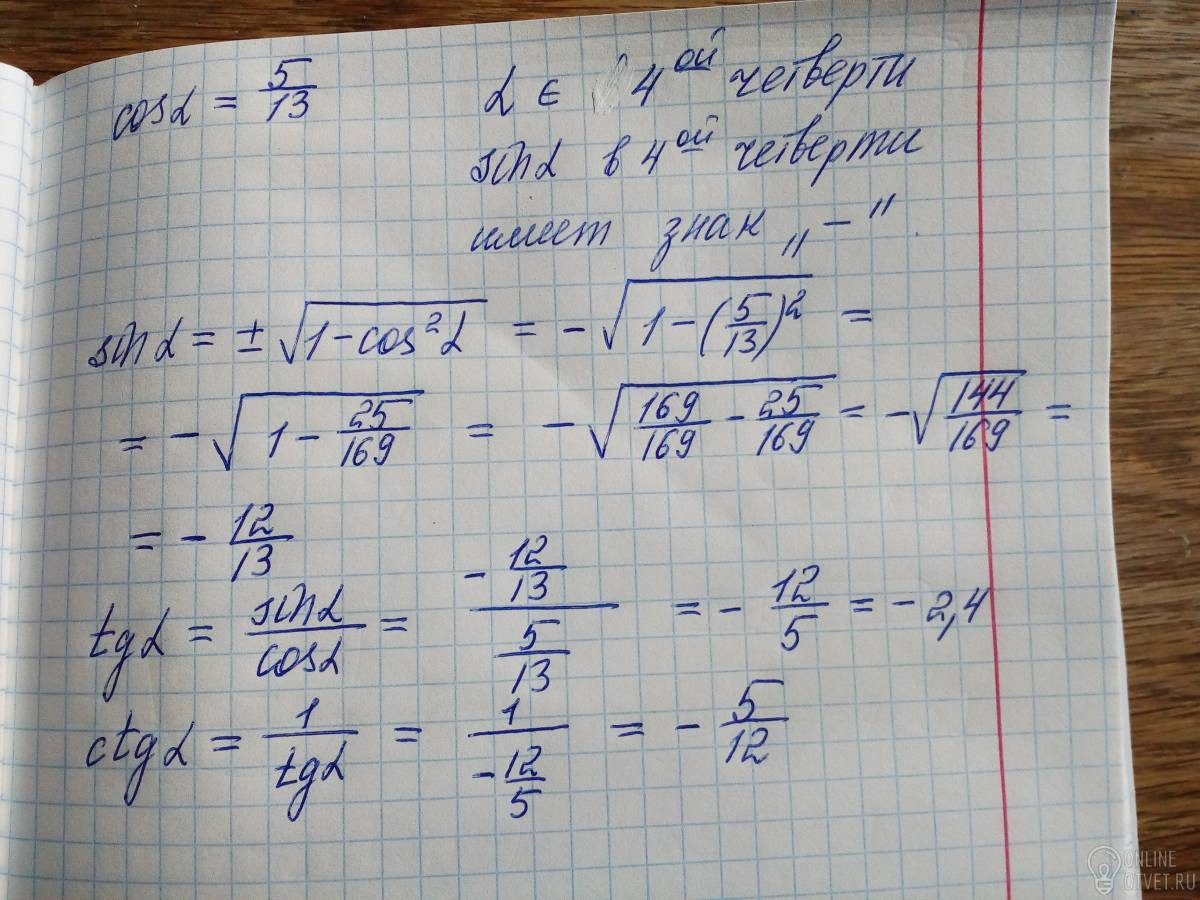 cosα = 5/13 α ∈ 4ой четверти
sinα в 4ой четверти
имеет знак „−"
sinα = ± √(1−cos²α) = −√(1−(5/13)²) =
= −√(1 − 25/169) = −√(169/169 − 25/169) = −√(144/169) =
= − 12/13
tgα = sinα/cosα = (−12/13)/(5/13) = − 12/5 = − 2,4
ctgα = 1/tgα = 1/(−12/5) = − 5/12
ONLINE
OTVET.RU